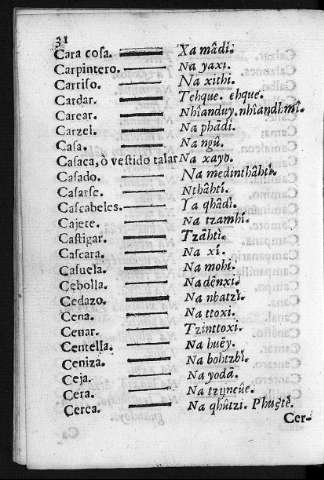 31
Cara cosa. Xa mâdi.
Carpintero. Na yaxi.
Carriso. Na xithi.
Cardar. Tehque. ehque.
Carear. Nhîanduy. nhîandhmî.
Carzel. Na phādi.
Casa. Na ngû.
Casaca, ò vestido talar Na xayo.
Casado. Na medinthâhti.
Casarse. Nthâhti.
Cascabeles. Ya qhâdi.
Cajete. Na tzamhi.
Castigar. Tzāhti.
Cascara. Na xi.
Casuela. Na mohi.
Cebolla. Na dēnxi.
Cedazo. Na nhatzi.
Cena. Na ttoxi.
Cenar. Tzinttoxi.
Centella. Na huēy.
Ceniza. Na bohtzhi.
Ceja. Na yodā.
Cera. Na tziyneûe.
Cerca. Na qhûtzi. Phuêtê.
Cer-